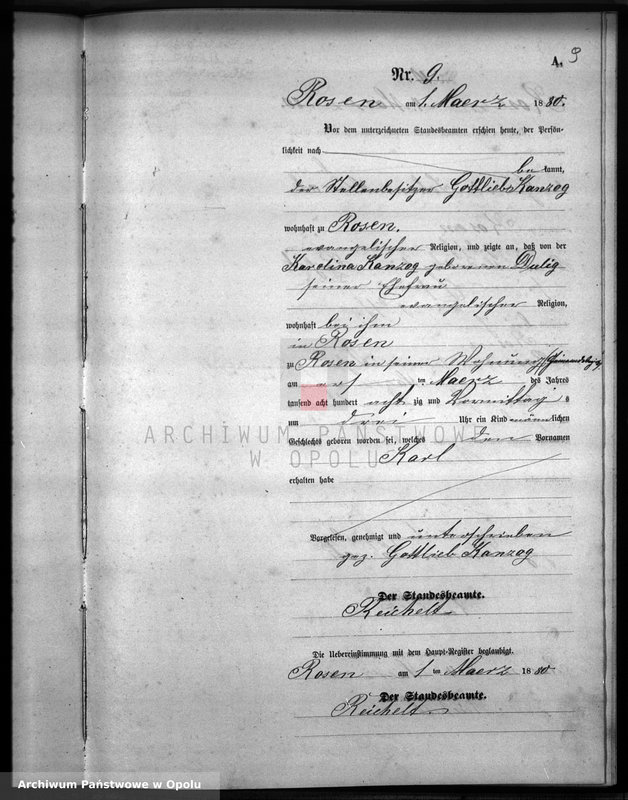 A. 9
Nr. 9.
Rosen am 1. Maerz 1880.
Vor dem unterzeichneten Standesbeamten erschien heute, der Persön-
lichkeit nach
be kannt,
der Stellenbesitzer Gottlieb Kanzog
wohnhaft zu Rosen.
evangelischer Religion, und zeigte an, daß von der
Karolina Kanzog geborenen Dulig
seiner Ehefrau
evangelischer Religion,
wohnhaft bei ihm
in Rosen
zu Rosen in seiner Wohnung
am ersten Maerz des Jahres
tausend acht hundert achtzig und Vormittags
um drei Uhr ein Kind männlichen
Geschlechts geboren worden sei, welches den Vornamen
Karl
erhalten habe
ARCHIWUM PAŃSTWOWE
W OPOLU
Vorgelesen, genehmigt und unterschrieben
gez. Gottlieb Kanzog
Der Standesbeamte.
Reichelt
Die Uebereinstimmung mit dem Haupt-Register beglaubigt.
Rosen am 1 ten Maerz 1880
Der Standesbeamte.
Reichelt
Archiwum Państwowe w Opolu